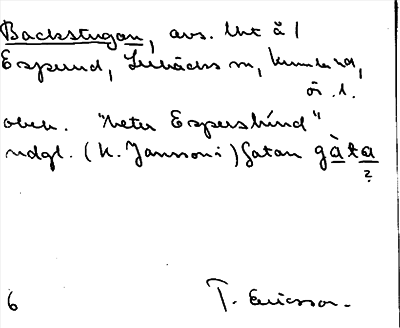 Backstugan, avs. lht å l
Espund, Lerbäcks sn, Kumla hd,
ör. l.
obek. "heter Esperslund"
ndgl. (K. Jansson i) Gatan gàta
?
6 T. Ericsson.